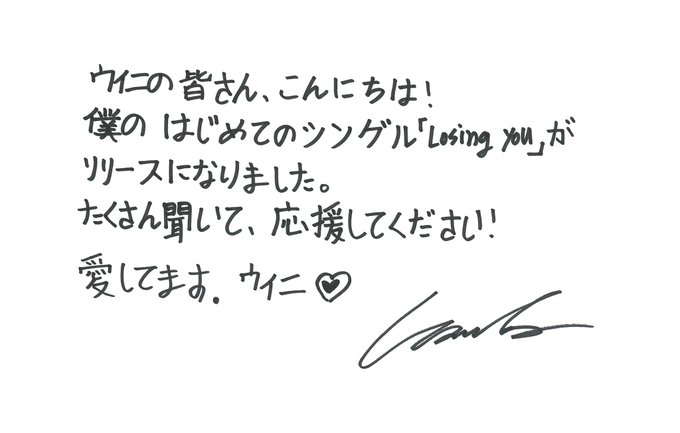 ウィニの皆さん、こんにちは!
僕の はじめてのシングル「Losing you」が
リリースになりました。
たくさん聞いて、応援してください!
愛してます. ウィニ♡